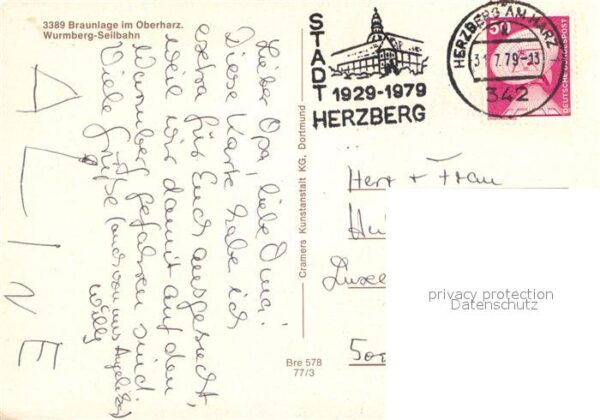 3389 Braunlage im Oberharz.
Wurmberg-Seilbahn
Lieber Opa, liebe Omai!
Diese Karte habe ich
extra für Euch ausgesucht,
weil wir damit auf den
Wurmberg gefahren sind.
Viele Grüße (auch von uns Angelika,
Willy
ALINE
Cramers Kunstanstalt KG, Dortmund
Bre 578
77/3
STADT
1929-1979
HERZBERG
HERZBERG AM HARZ
31.7.79-13
342
50
DEUTSCHE BUNDESPOST
Herr + Frau
Hu
Luxe
500
privacy protection
Datenschutz